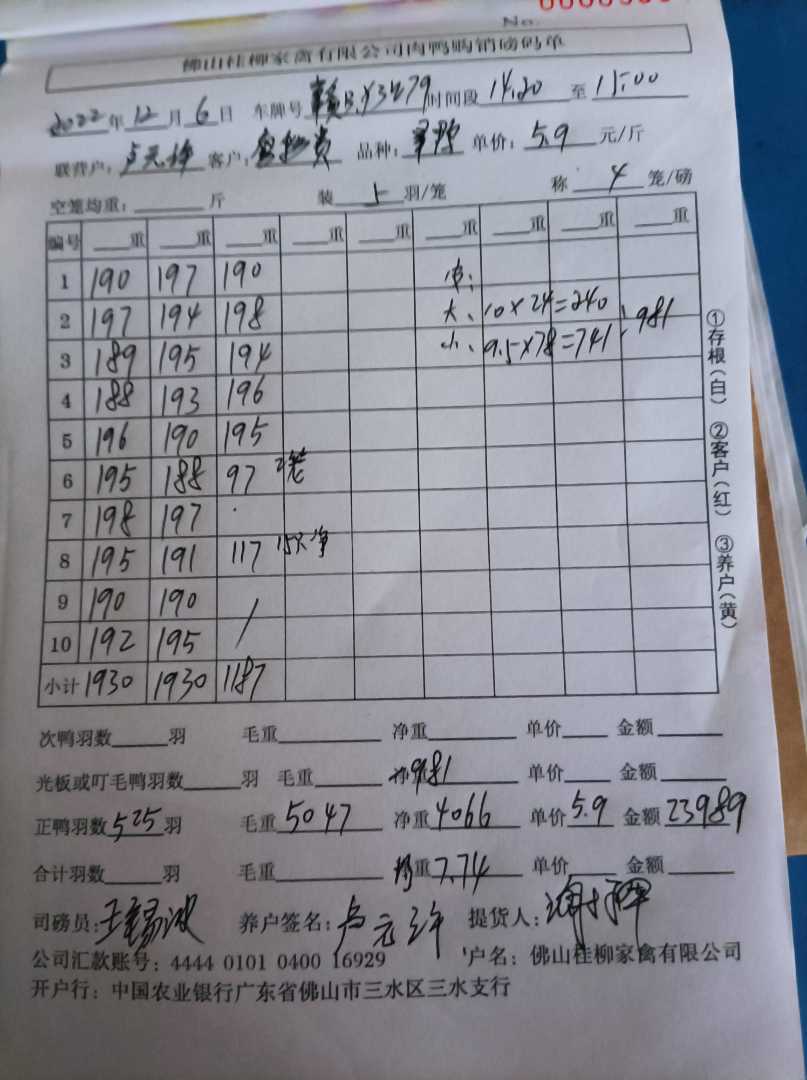 No.
佛山桂柳家禽有限公司肉鸭购销磅码单
2022年12月6日 车牌号 赣B.Y3279 时间段 14.20 至 15.00
联营户: 客户: 品种: 单价: 5.9 元/斤
空笼均重: 斤 装 5 羽/笼 称 4 笼/磅
编号 重 重 重 重 重 重 重 重 重
1 190 197 190
2 197 194 198 大、10×24=240
3 189 195 194 小、9.5×78=741 981
4 188 193 196
5 196 190 195
6 195 188 97 2笼
7 198 197
8 195 191 117 15只净
9 190 190 /
10 192 195 /
小计 1930 1930 1187
①存根(白) ②客户(红) ③养户(黄)
次鸭羽数 羽 毛重 净重 单价 金额
光板或叮毛鸭羽数 羽 毛重 981 单价 金额
正鸭羽数 525 羽 毛重 5047 净重 4066 单价 5.9 金额 23989
合计羽数 羽 毛重 重 7.74 单价 金额
司磅员: 养户签名: 提货人:
公司汇款账号: 4444 0101 0400 16929 户名: 佛山桂柳家禽有限公司
开户行: 中国农业银行广东省佛山市三水区三水支行